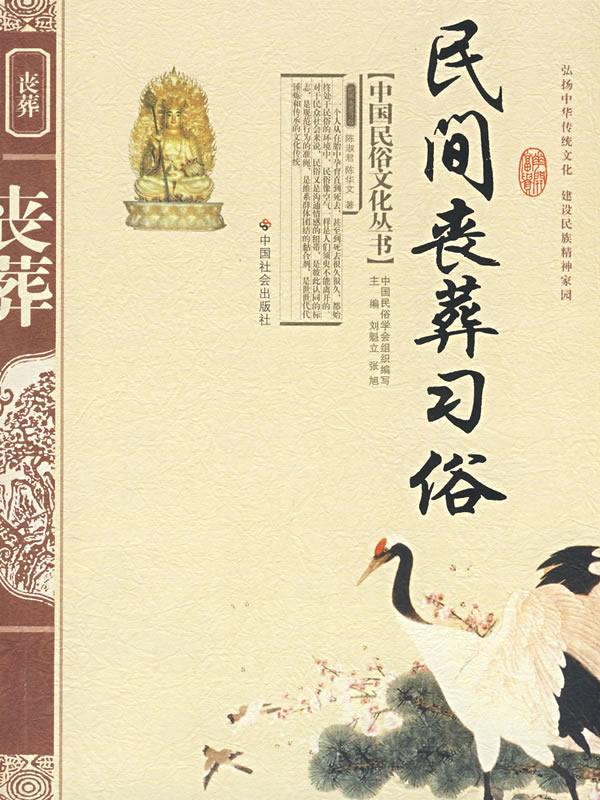 弘扬中华传统文化 建设民族精神家园
民间丧葬习俗
【中国民俗文化丛书】
中国民俗学会组织编写
主编 刘魁立 张旭
陈淑君 陈华文 著
一个人从在胎中孕育直到死去，甚至到死去很久很久，都始
终处于民俗的环境中，民俗像空气一样是人们须臾不能离开的。
对于民众社会来说，民俗又是沟通情感的纽带，是彼此认同的标
志，是规范行为的准绳，是维系群体团结的黏合剂，是世世代代
锤炼和传承的文化传统。
中国社会出版社
丧葬
丧葬